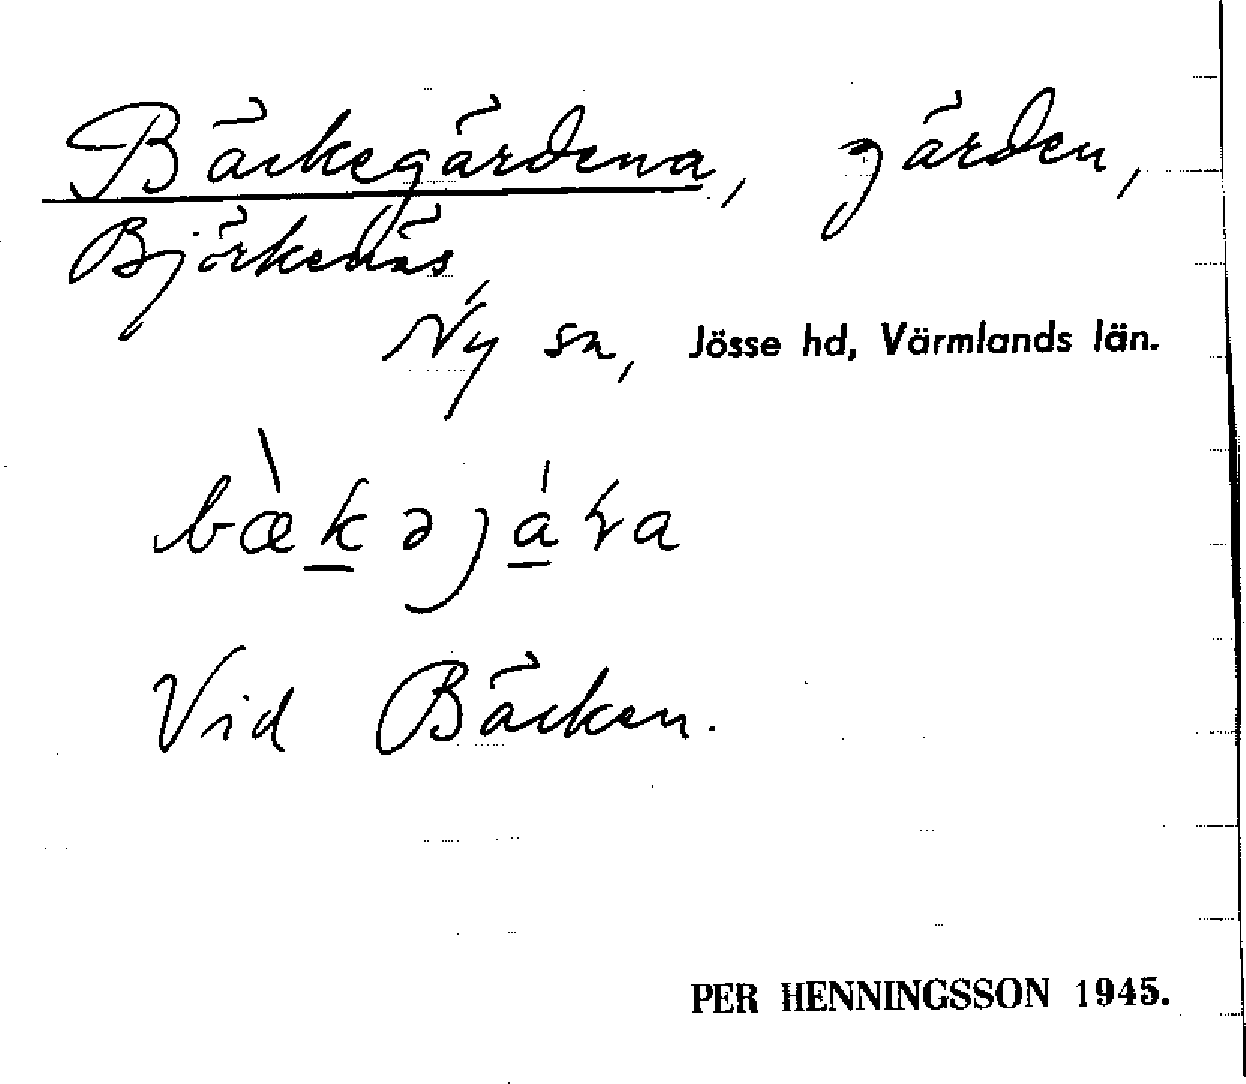 Bäckegärdena, gärden,
Björkenäs
Ny sn, Jösse hd, Värmlands län.
Vid Bäcken.
PER HENNINGSSON 1945.